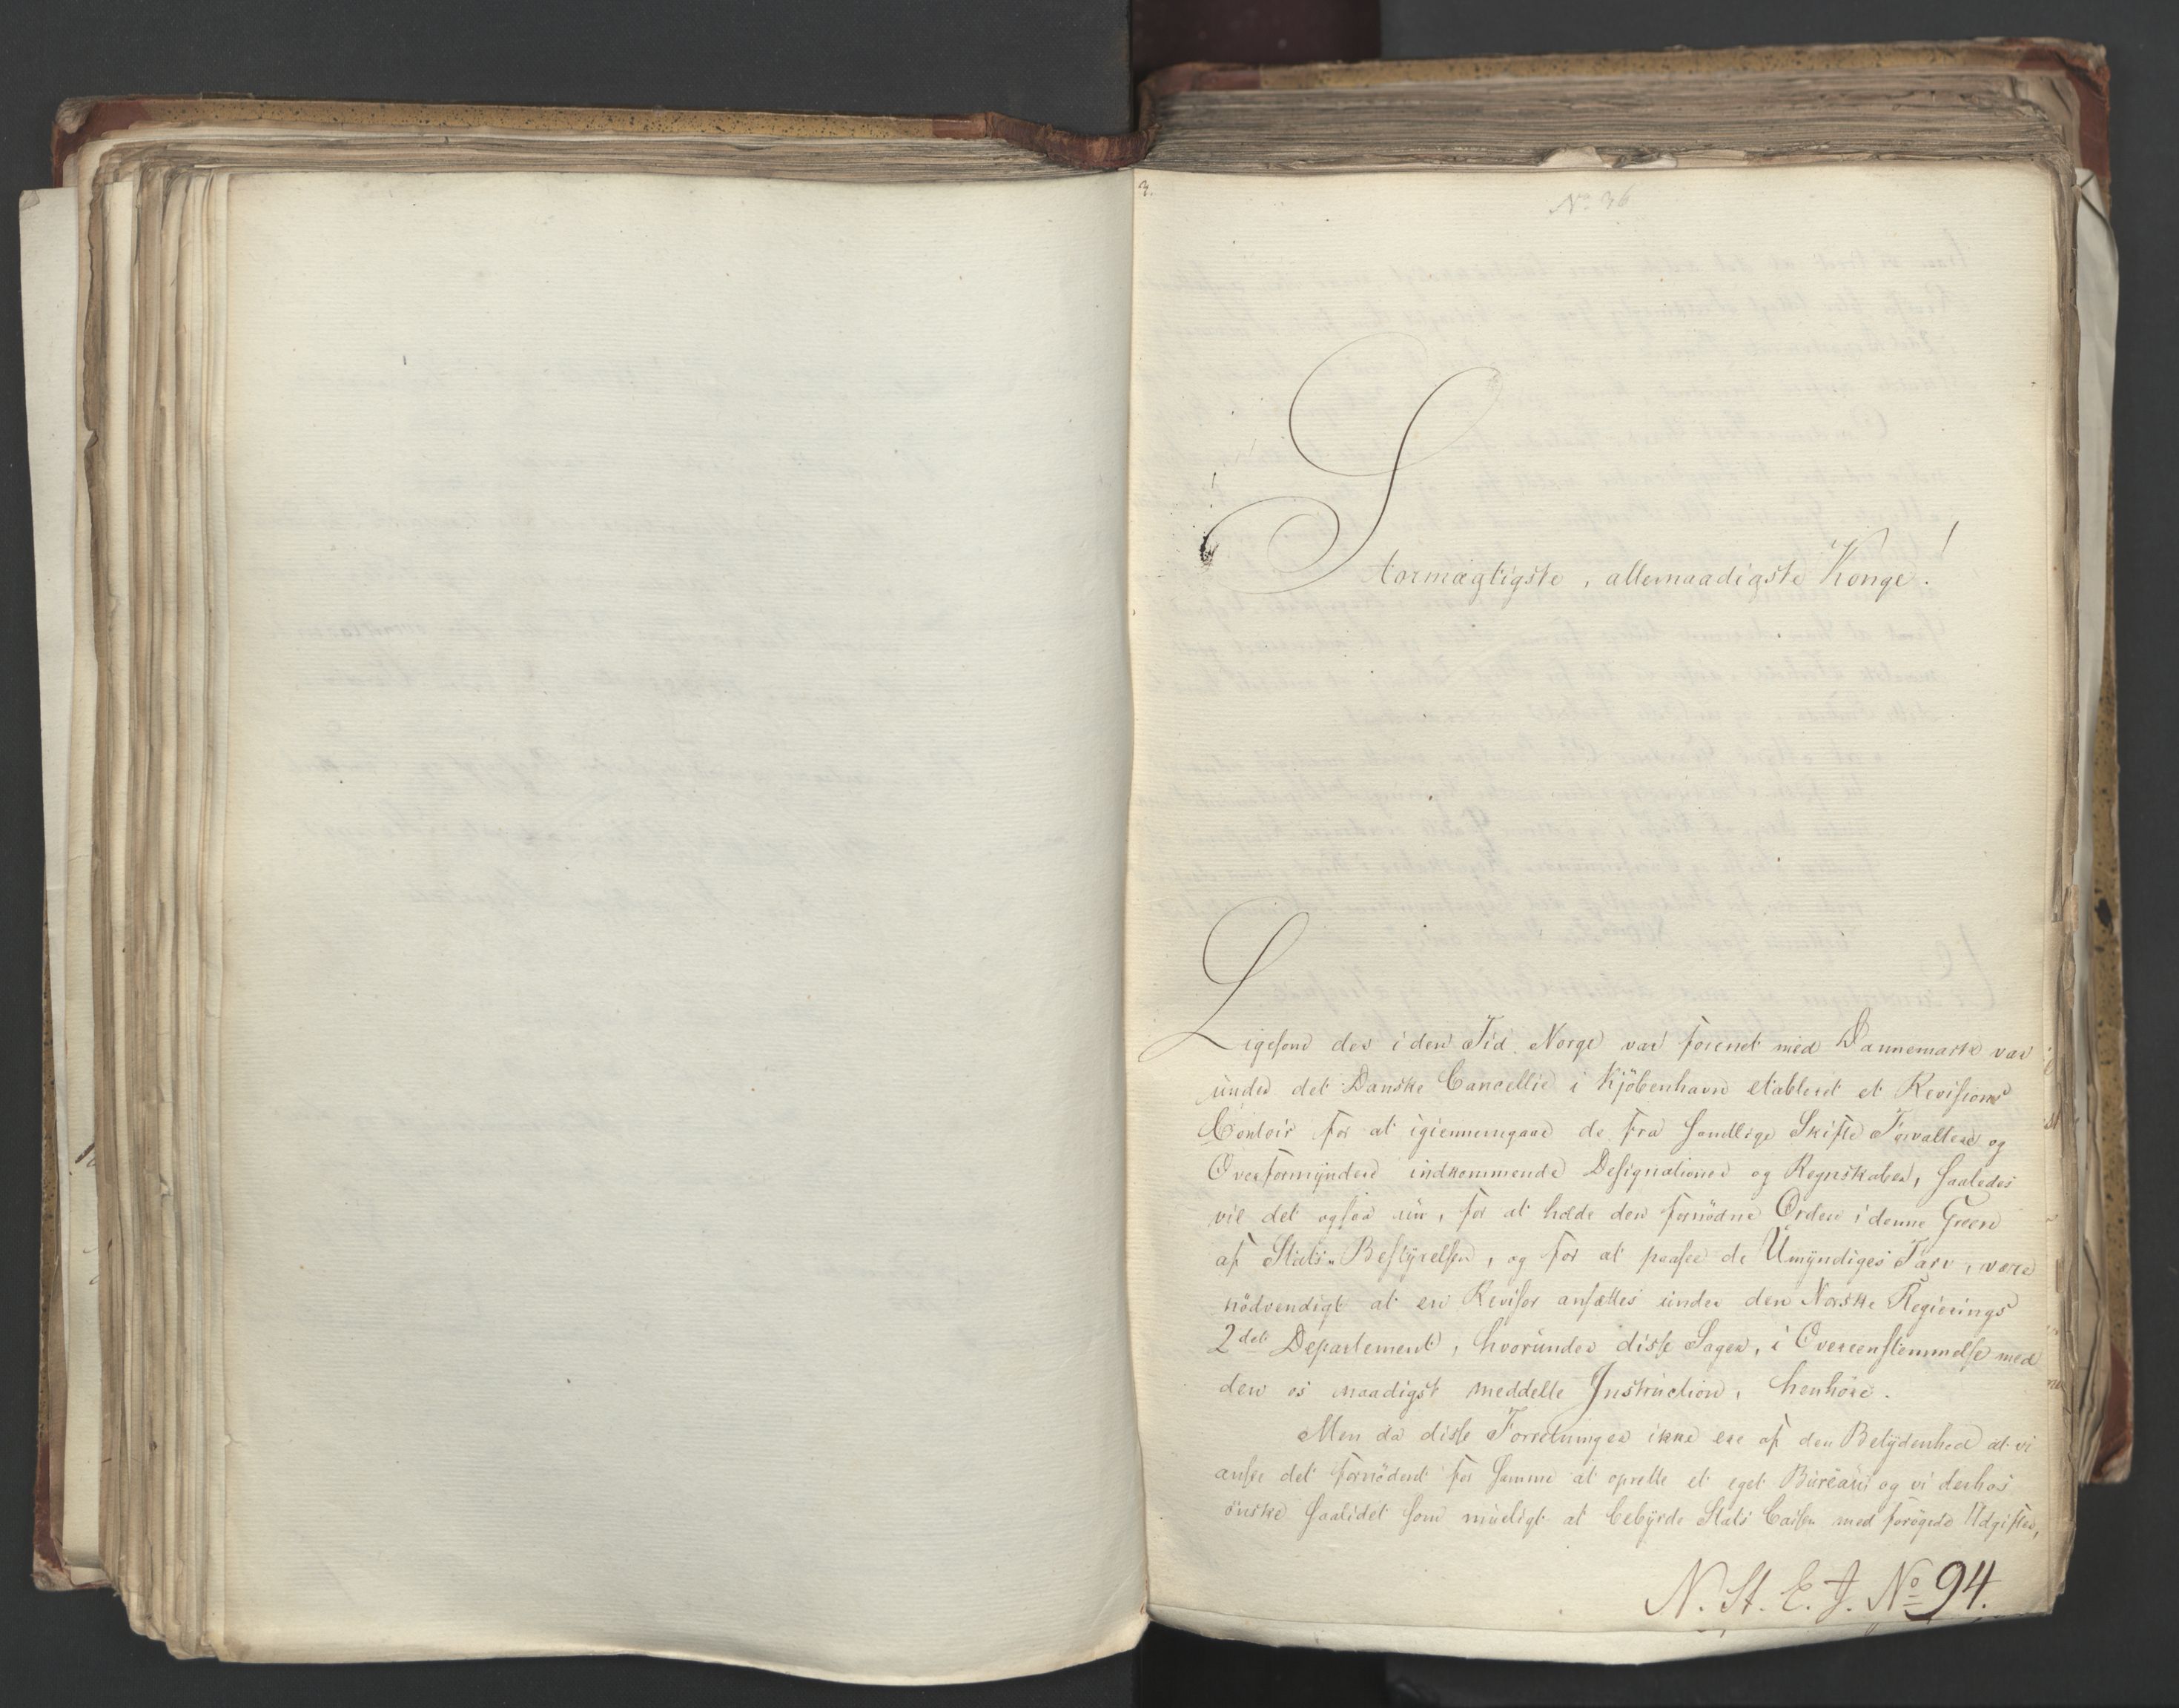 3.
No 36
Stormægtigste, allernaadigste Konge!
Ligesom der i den Tid Norge var forenet med Dannemark var
under det Danske Cancellie i Kjöbenhavn etableret et Revisions
Contoir for at igiennemgaae de fra samtlige Skifte Forvaltere og
Overformyndere indkommende Designationer og Regnskaber, saaledes
vil det ogsaa nu, for at holde den fornödne Orden i denne Green
af Stats-Bestyrelsen, og for at paasee de Umyndiges Tarv, være
nödvendigt at en Revisor ansættes under den Norske Regierings
2det Departement, hvorunder disse Sager, i Overeenstemmelse med
den os naadigst meddelte Instruction, henhöre.
Men da disse Forretninger ikke ere af den Betydenhed at vi
ansee det fornödent for samme at oprette et eget Bureau og vi derhos
önske saalidet som mueligt at bebyrde Stats Cassen med forögede Udgifter,
N. St. E. J. No 94.